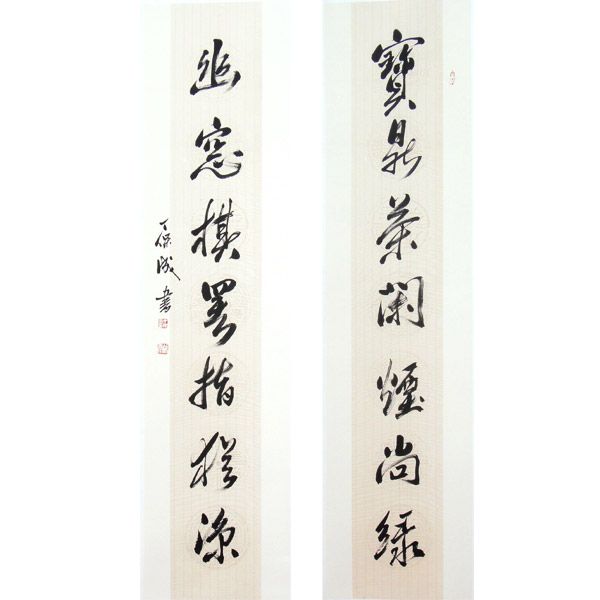 寶鼎茶閑煙尚綠
幽窓棋罷指猶涼
丁保成書